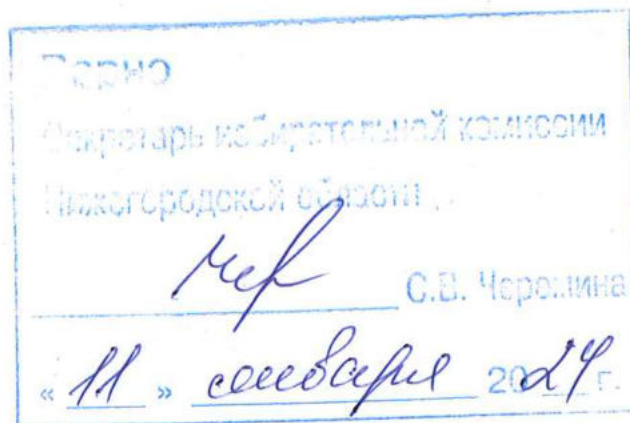 Верно
Секретарь избирательной комиссии
Нижегородской области
С.В. Черемина
« 11 » января 2024 г.